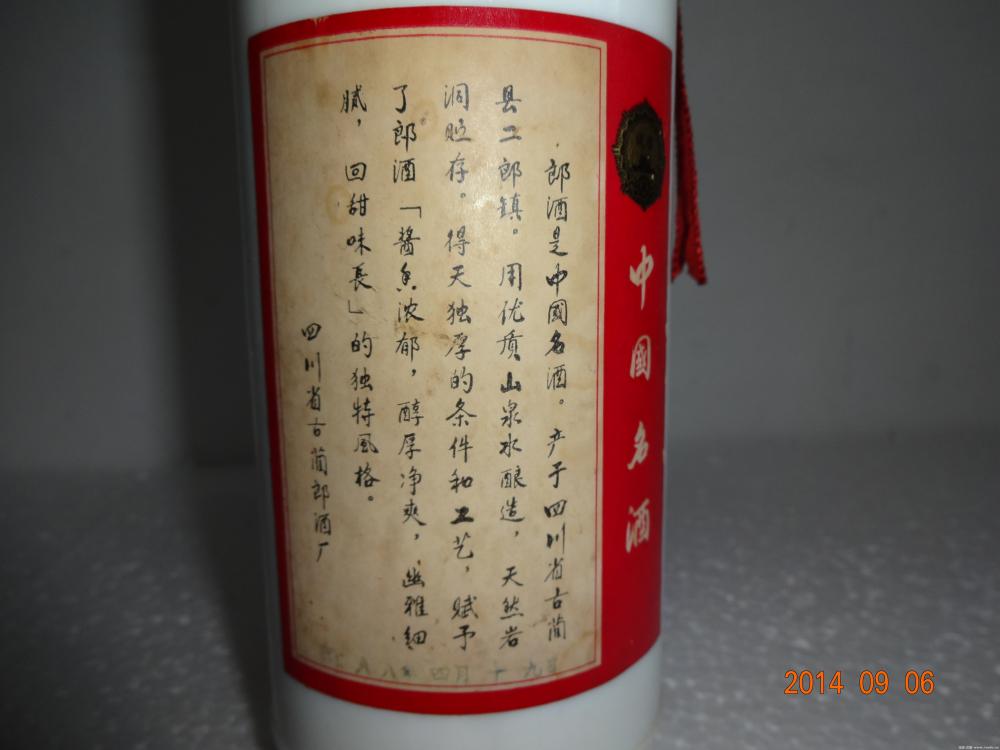 郎酒是中國名酒。产于四川省古蔺
县二郎镇。用优质山泉水酿造，天然岩
洞贮存。得天独厚的条件和工艺，赋予
了郎酒「醬香浓郁，醇厚净爽，幽雅细
腻，回甜味長」的独特风格。
四川省古蔺郎酒厂
中國名酒
八八年四月十九日
2014 09 06